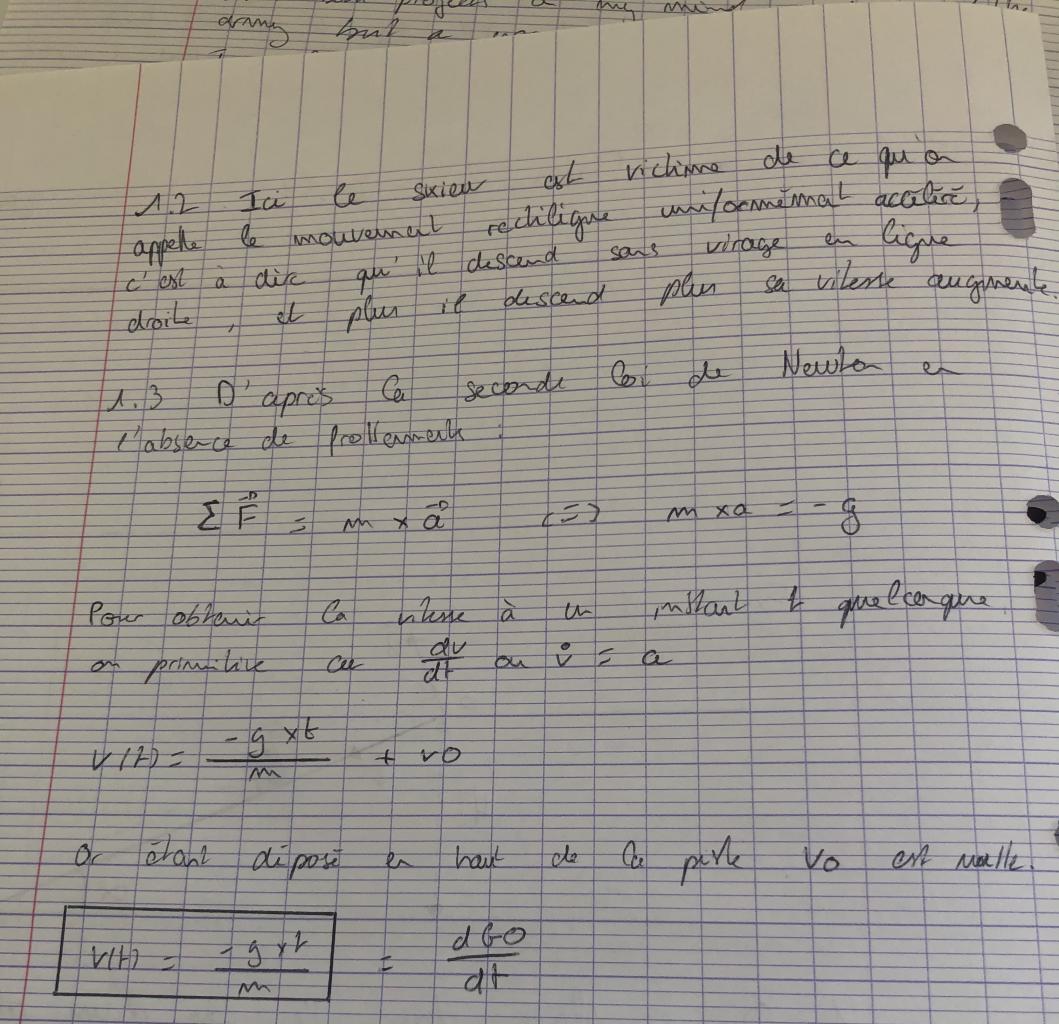 my mind
but a
1.2 Ici le skieur est victime de ce qu'on
appelle le mouvement rectiligne uniformément accéléré,
c'est à dire qu'il descend sans virage en ligne
droite, et plus il descend plus sa vitesse augmente.
1.3 D'après la seconde loi de Newton en
l'absence de frottements :
Σ F⃗ = m × a⃗ <=> m × a = - g
Pour obtenir la vitesse à un instant t quelconque
on primitive car dv/dt ou v̇ = a
v(t) = (- g × t)/m + v0
Or étant déposé en haut de la piste v0 est nulle.
v(t) = (- g × t)/m = dGO/dt